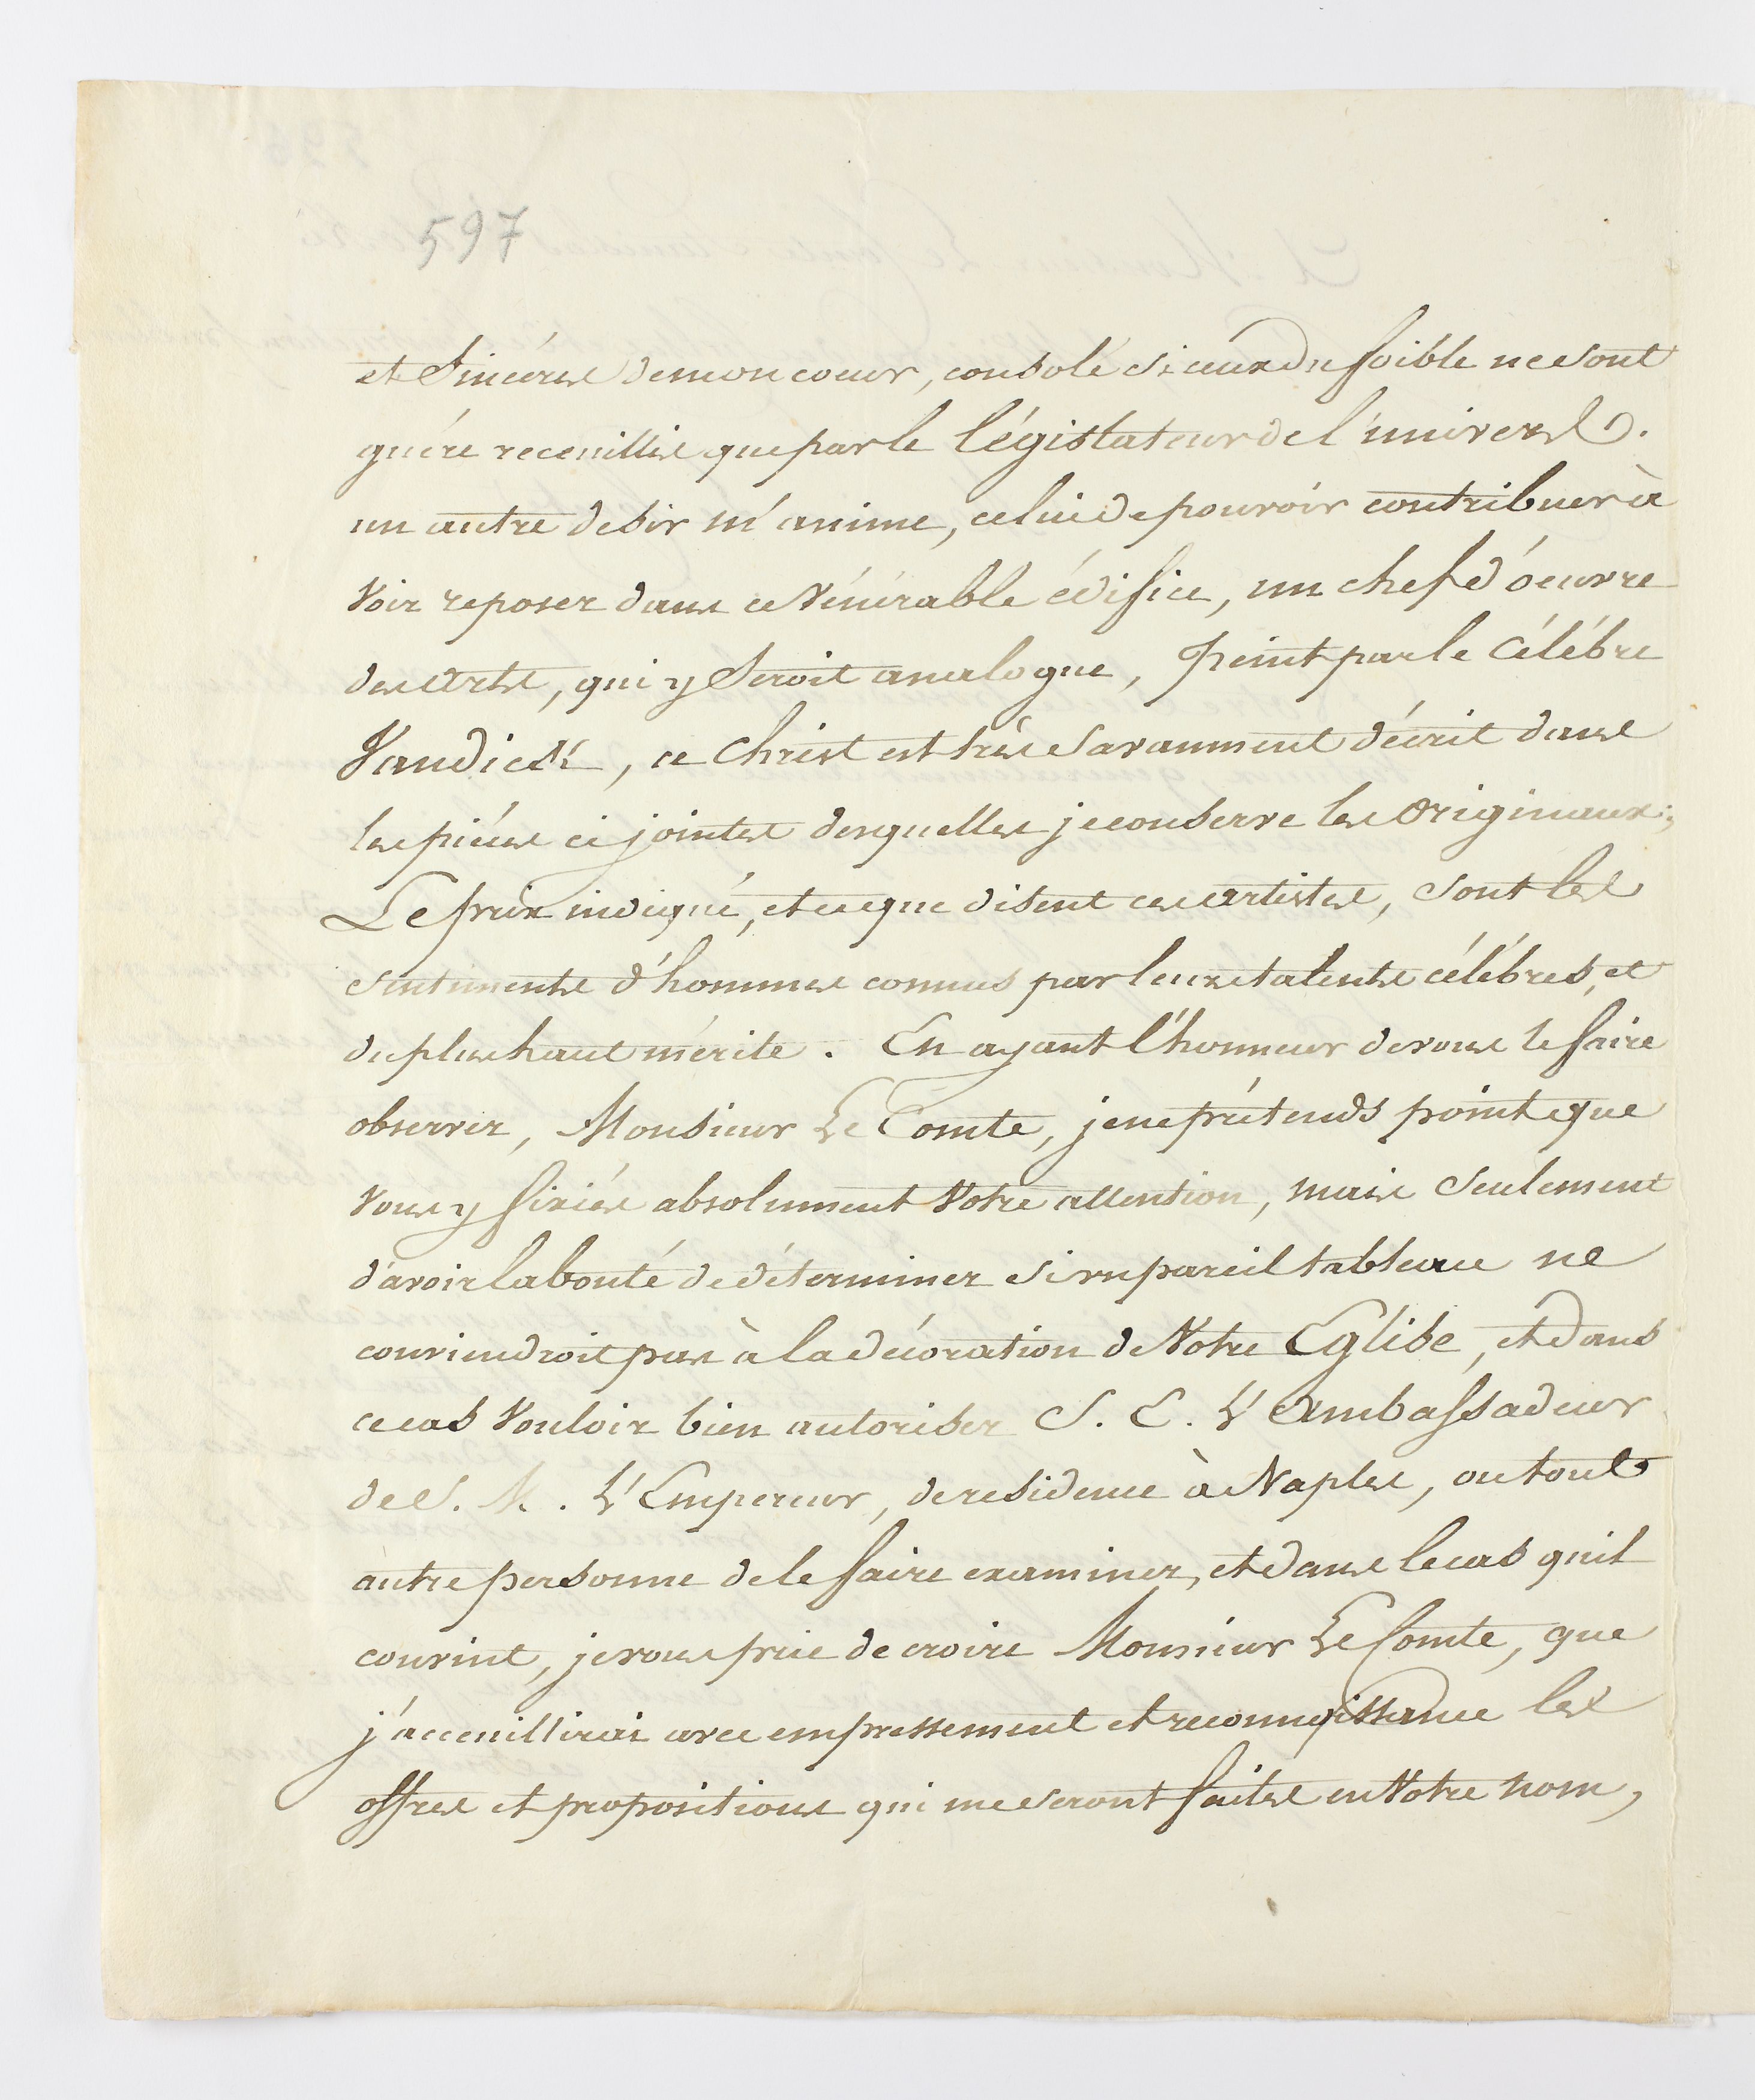 597
et Sincéres de mon coeur, consolé si ceux du foible ne sont
guére receuillis que par le législateur de l'univers.
un autre desir m'anime, celui de pouvoir contribuer à
Voir reposer dans ce Vénérable édifice, un chef d'oeuvre
des Arts, qui y Seroit analogue, Peint par le Célébre
Vandick, ce Christ est très Savamment décrit dans
les piéces ci jointes desquelles je conserve les Originaux;
Le prix indiqué, et ce que disent ces artistes, sont les
sentiments d'hommes connus par leurs talents célébres, et
du plus haut mérite. En ayant l'honneur de vous le faire
observer, Monsieur Le Comte, je ne prétends point que
Vous y fixiés absolument Votre attention, mais Seulement
d'avoir la bonté de déterminer si un pareil tableau ne
conviendroit pas à la décoration de Notre Eglise, et dans
ce cas Vouloir bien autoriser S. E. L'Ambassadeur
de S. M. L'Empereur, de residence à Naples, ou toute
autre personne de le faire examiner, et dans le cas qu'il
convint, je vous prie de croire Monsieur Le Comte, que
j'acceuillirai avec empressement et reconnoissance les
offres et propositions qui me seront faites en Votre nom,